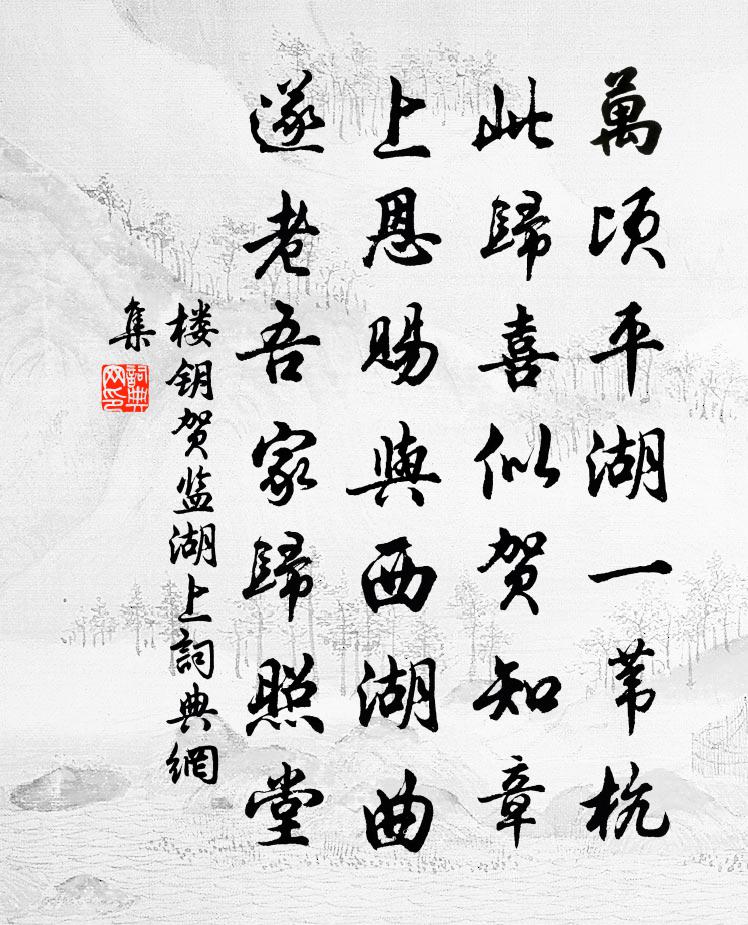 萬頃平湖一苇杭
此歸喜似贺知章
上恩賜與西湖曲
遂老吾家歸照堂
楼钥贺监湖上詞典網
集
詞典
网印